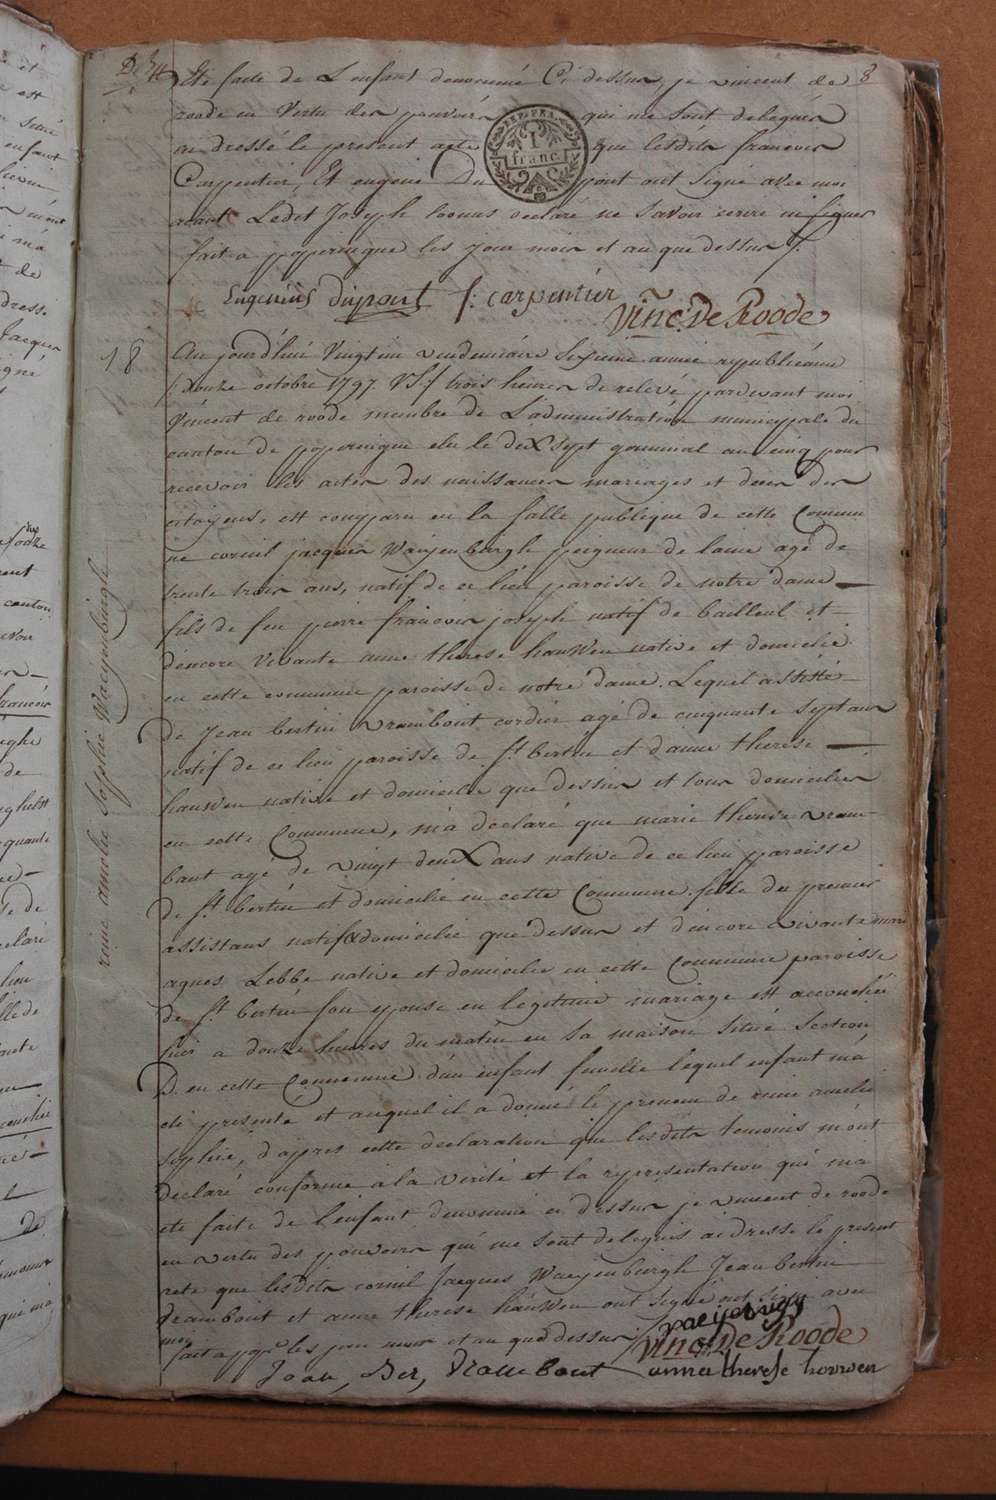 8
Eté faite de L'enfant denommé Ci dessus, je vincent de
roode en Vertu des pouvoirs qui me sont delegués
ai dressé le present acte que lesdits francois
Carpentier, Et eugene Dupont ont signé avec moi
Ledit Joseph declaré ne savoir ecrire ni signer
fait a poperingue les jour mois et an que dessus
REP. FRA.
1
franc
Eugenius dupont f: carpentier
Vinc: De Roode
18
reine amelie Sophie Waeyenburgh
Au jourd'hui Vingt un vendemiaire Sixieme année republicaine
douze octobre 1797. VSt trois heures de relevé pardevant moi
Vincent de roode membre de L'administration municipale du
canton de poperingue elu le dix sept germinal an cinq pour
recevoir les actes des naissances mariages et deces des
citoyens, est comparu en la salle publique de cette Commu
ne cornil jacques Waeyenbergh peigneur de laine agé de
trente trois ans, natif de ce lieu paroisse de notre dame
fils de feu pierre francois joseph natif de bailleul et
d'encore vivante anne therese hauwen native et domicilié
en cette commune paroisse de notre dame. Lequel assisté
de Jean bertin vrambout cordier agé de cinquante sept ans
natif de ce lieu paroisse de st bertin et d'anne therese
hauwen native et domicilié que dessus et tous domiciliés
en cette Commune, m'a declaré que marie therese vram
bout agé de vingt deux ans native de ce lieu paroisse
de st bertin et domicilié en cette Commune fille du premier
assistans natif & domicilié que dessus et d'encore vivante marie
agnes Lebbe native et domicilié en cette Commune paroisse
de st bertin son epouse en legitime mariage est accouchée
hier a douze heures du matin en sa maison situé Section
D. en cette Commune d'un enfant femelle lequel enfant m'a
eté presenté et auquel il a donné le prenom de reine amelie
sophie, d'apres cette declaration que lesdits temoins m'ont
declaré conforme a la verité et la representation qui m'a
eté faite de l'enfant denommé ci dessus je vincent de roode
en vertu des pouvoirs qui me sont delegués ai dressé le present
acte que lesdits cornil Jacques Waeyenburgh Jean bertin
vrambout et anne therese hauwen ont signé avec
moi
fait a popue les jour mois et an que dessus
Vinc: De Roode
Joan, Ber, Vrambout anna therese houwen